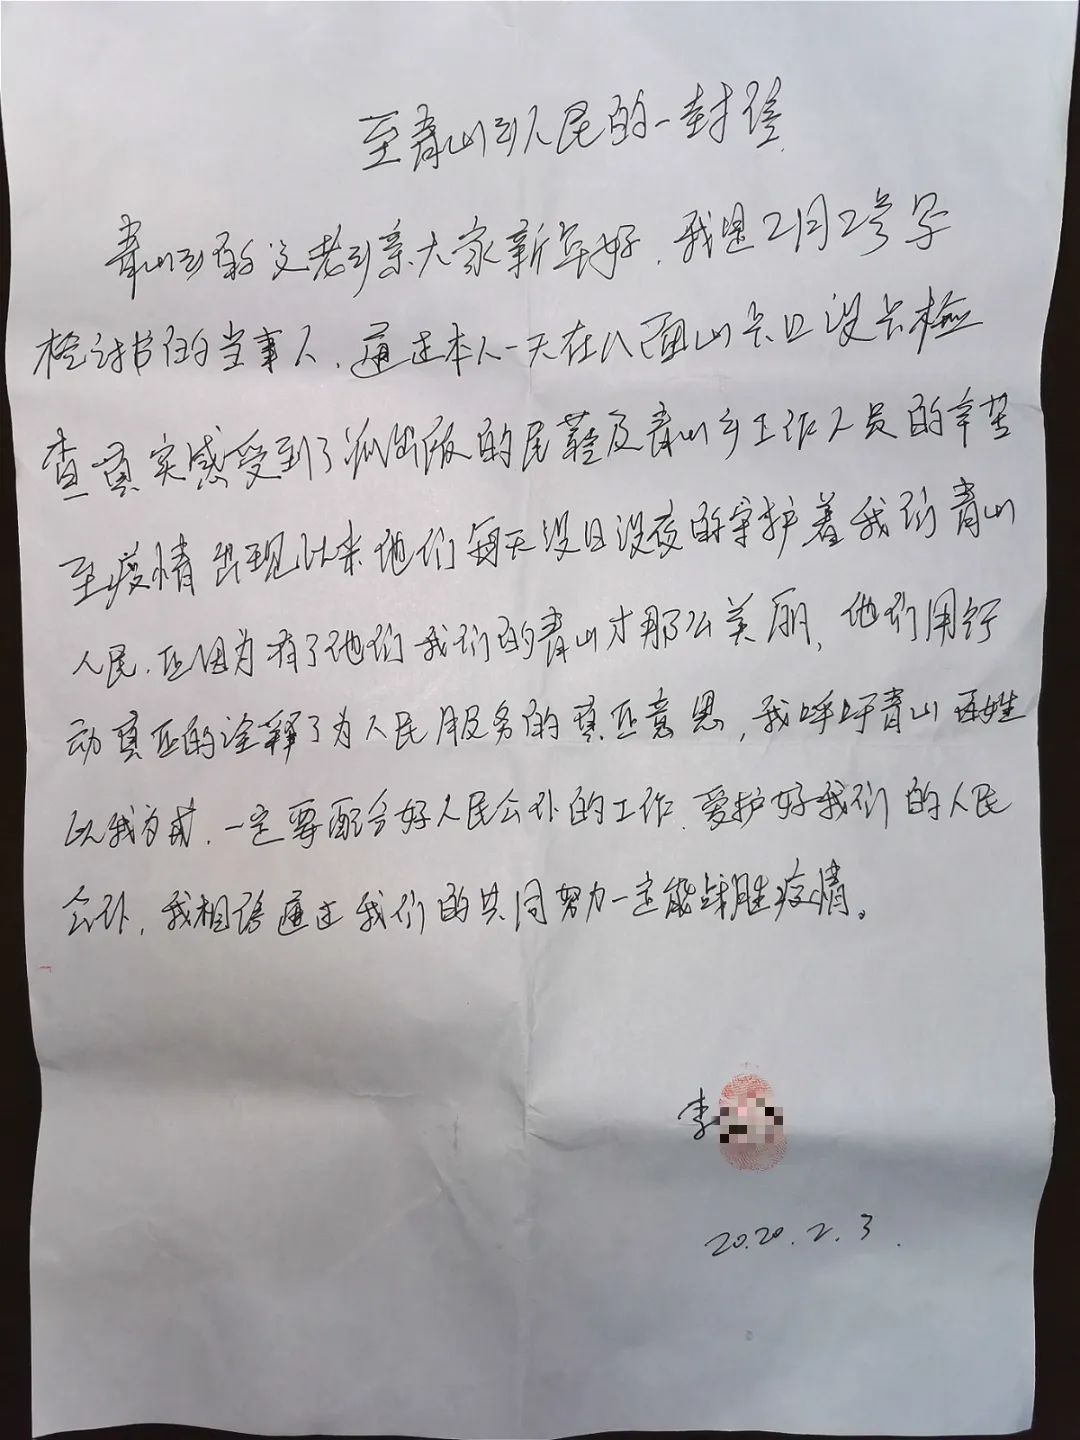 至青山乡人民的一封信
青山乡的父老乡亲大家新年好，我是2月2号写
检讨书的当事人，通过本人一天在八面山卡口设卡检
查真实感受到了派出所的民警及青山乡工作人员的辛苦
至疫情出现以来他们每天没日没夜的守护着我们青山
人民，正因为有了他们我们的青山才那么美丽，他们用行
动真正的诠释了为人民服务的真正意思，我呼吁青山百姓
以我为戒，一定要配合好人民公仆的工作，爱护好我们的人民
公仆，我相信通过我们的共同努力一定能战胜疫情。
李
2020.2.3.